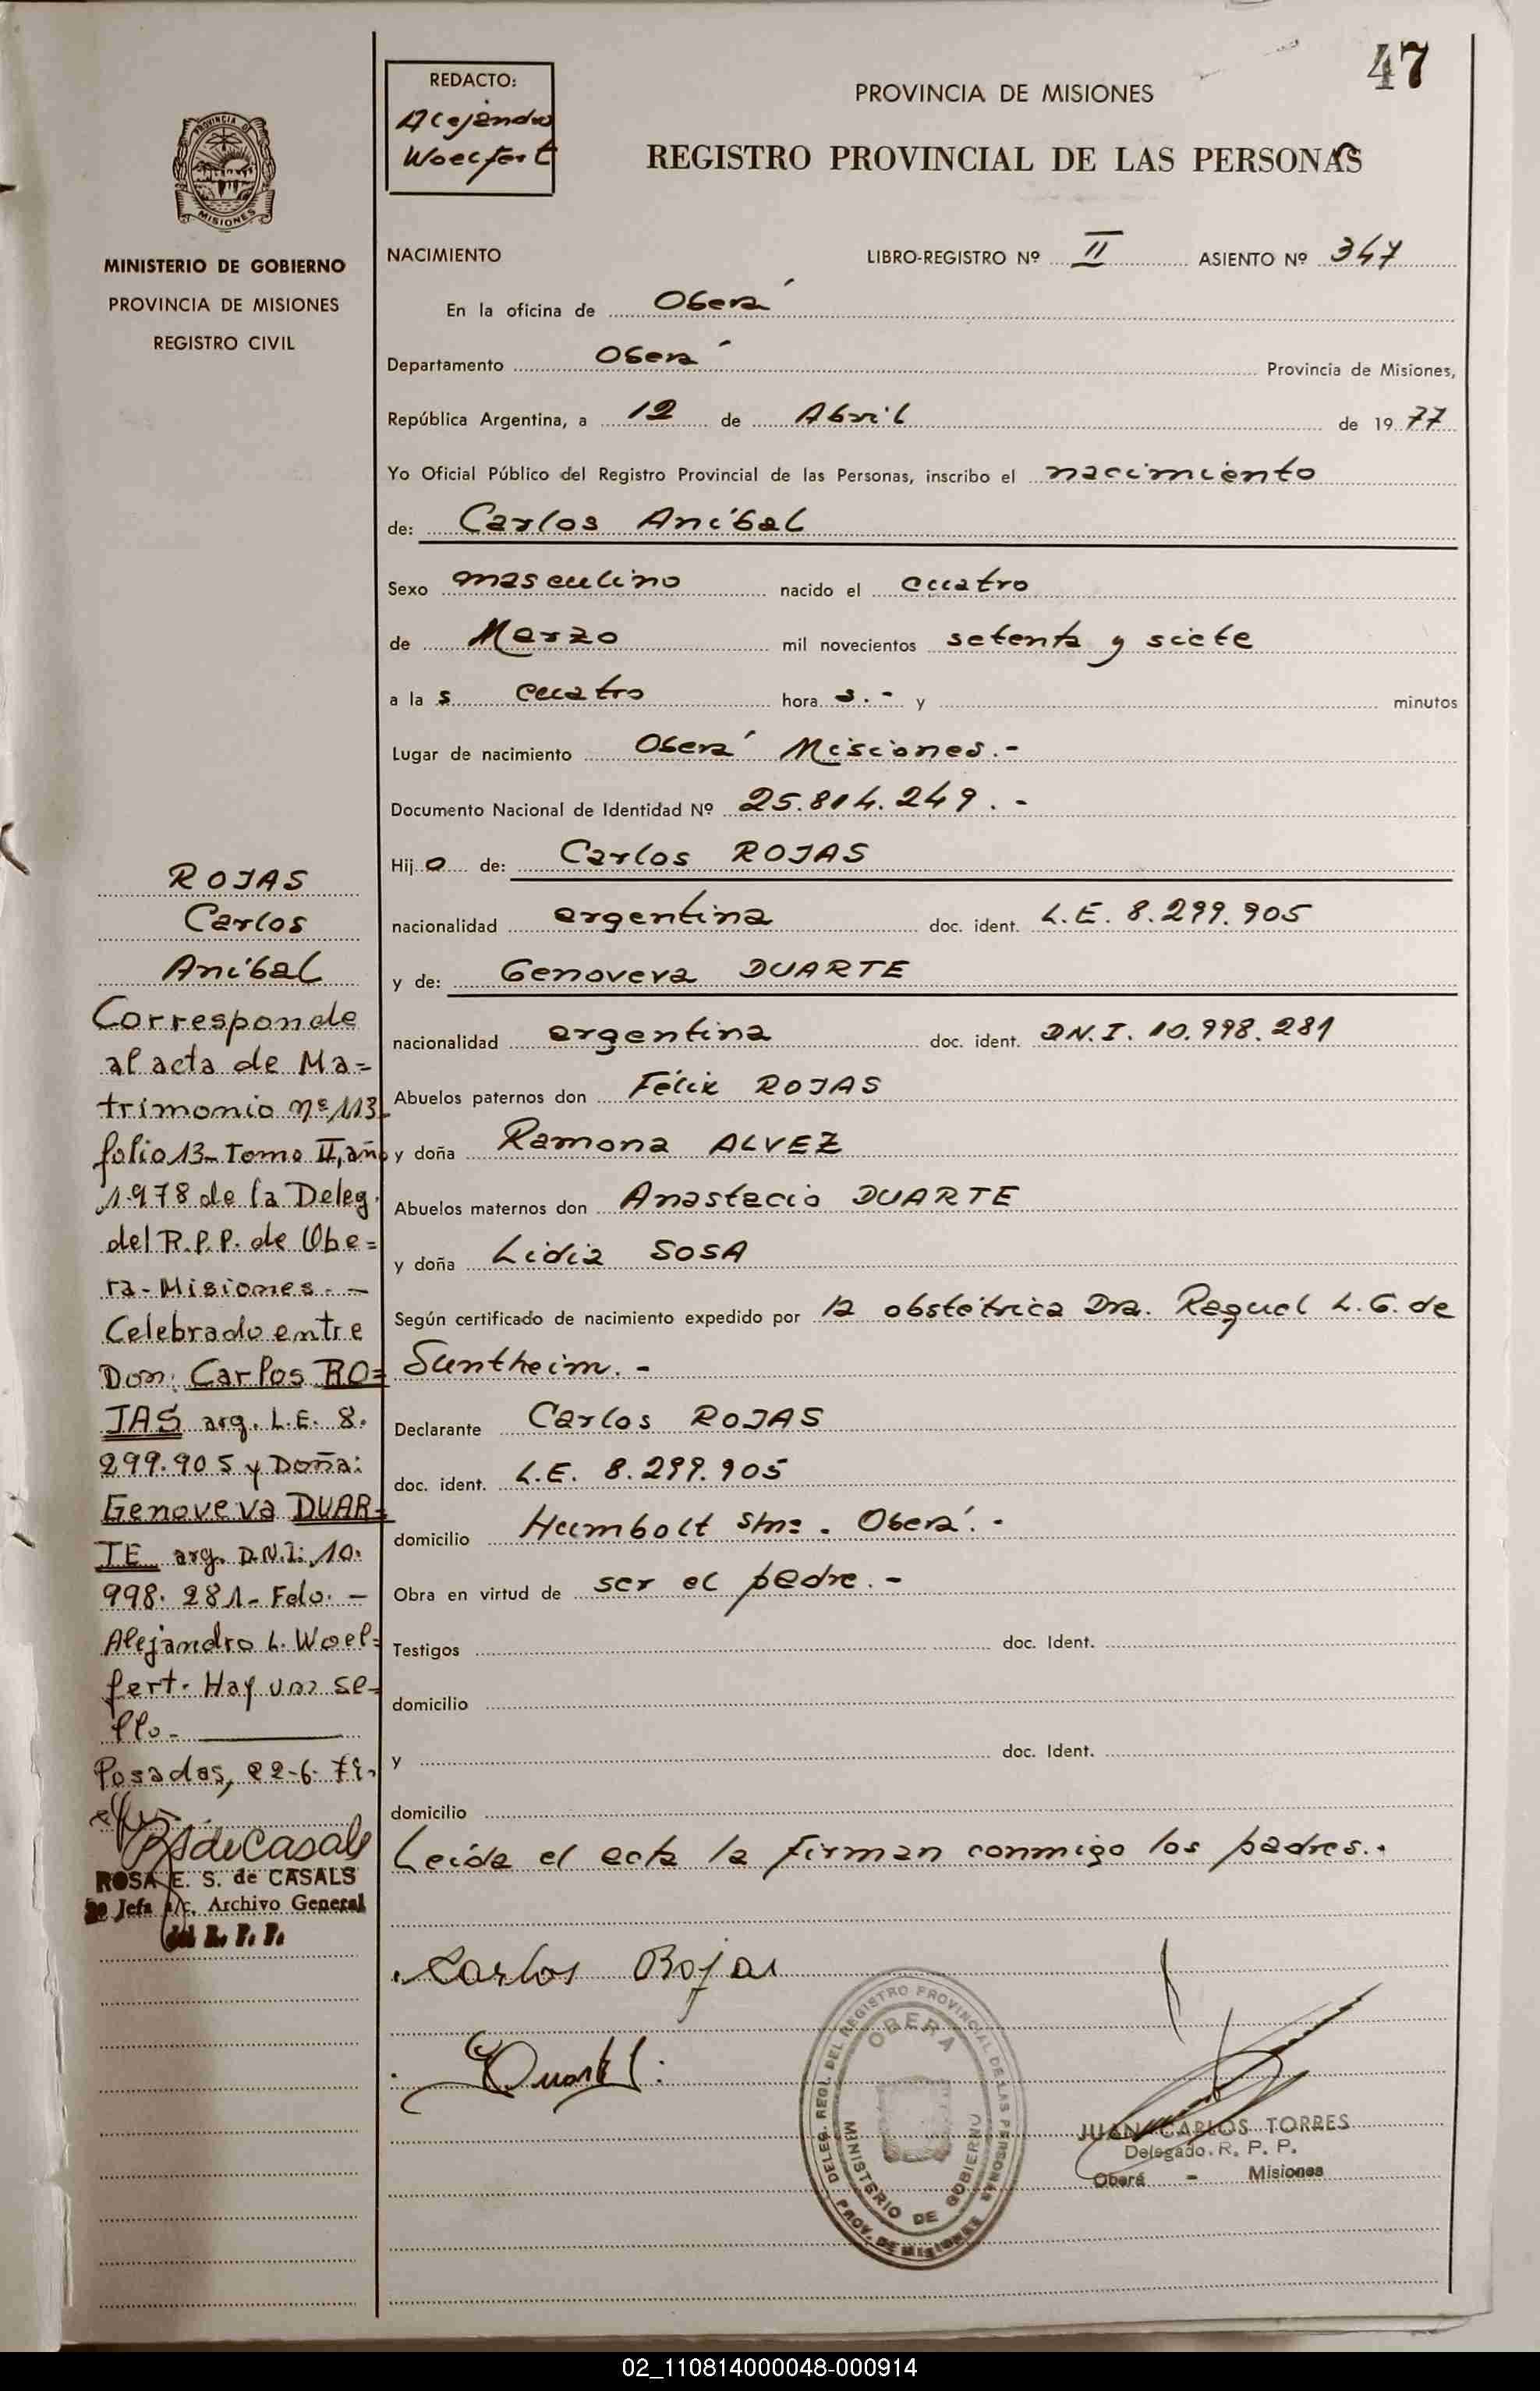 47
REDACTO:
Alejandro
Woelfert
PROVINCIA DE MISIONES
REGISTRO PROVINCIAL DE LAS PERSONAS
PROVINCIA DE
MISIONES
MINISTERIO DE GOBIERNO
PROVINCIA DE MISIONES
REGISTRO CIVIL
NACIMIENTO LIBRO-REGISTRO Nº II ASIENTO Nº 347
En la oficina de Oberá
Departamento Oberá Provincia de Misiones,
República Argentina, a 12 de Abril de 1977
Yo Oficial Público del Registro Provincial de las Personas, inscribo el nacimiento
de: Carlos Aníbal
Sexo masculino nacido el cuatro
de Marzo mil novecientos setenta y siete
a las cuatro hora s.- y minutos
Lugar de nacimiento Oberá Misiones.-
Documento Nacional de Identidad Nº 25.814.249.-
Hijo de: Carlos ROJAS
nacionalidad argentina doc. ident. L.E. 8.299.905
y de: Genoveva DUARTE
nacionalidad argentina doc. ident. D.N.I. 10.998.281
Abuelos paternos don Félix ROJAS
y doña Ramona ALVEZ
Abuelos maternos don Anastacio DUARTE
y doña Lidia SOSA
Según certificado de nacimiento expedido por la obstétrica Dra. Raquel L.G. de
Suntheim.-
Declarante Carlos ROJAS
doc. ident. L.E. 8.299.905
domicilio Humbolt s/nº. Oberá.-
Obra en virtud de ser el padre.-
Testigos doc. Ident.
domicilio
y doc. Ident.
domicilio
Leída el acta la firman conmigo los padres.-
Carlos Rojas
GDuarte
DELEG. REGI. DEL REGISTRO PROVINCIAL DE LAS PERSONAS
OBERA
MINISTERIO DE GOBIERNO
PROV. DE MISIONES
JUAN CARLOS TORRES
Delegado R. P. P.
Oberá - Misiones
ROJAS
Carlos
Aníbal
Corresponde
al acta de Ma=
trimonio nº 113-
folio 13- Tomo II, año
1.978 de la Deleg.
del R.P.P. de Obe=
rá-Misiones.-
Celebrado entre
Don: Carlos RO=
JAS arg. L.E. 8.
299.905 y Doña:
Genoveva DUAR=
TE arg. D.N.I: 10.
998.281- Fdo.-
Alejandro L. Woel=
fert- Hay un se-
llo-
Posadas, 22-6-
RSdeCasals
ROSA E. S. de CASALS
Jefa a/c. Archivo General
del R. P. P.
02_110814000048-000914